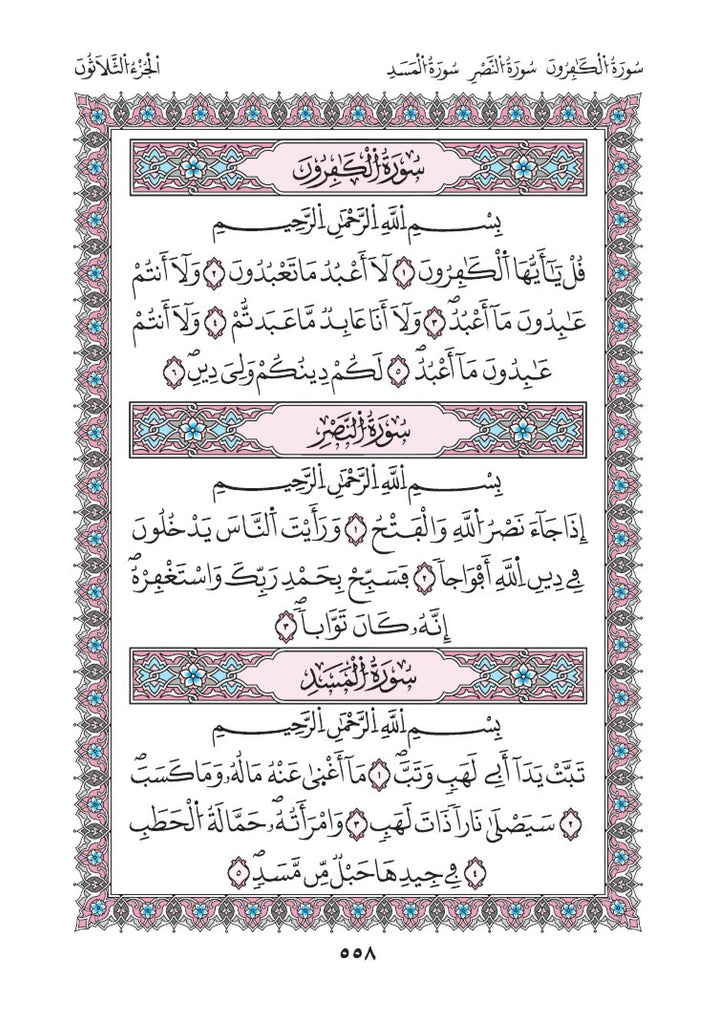 سُورَةُ الْكَافِرُونَ سُورَةُ النَّصْرِ سُورَةُ الْمَسَدِ
الْجُزْءُ الثَّلَاثُونَ
سُورَةُ الْكَافِرُونَ
بِسْمِ اللَّهِ الرَّحْمَٰنِ الرَّحِيمِ
قُلْ يَٰٓأَيُّهَا ٱلْكَٰفِرُونَ ١ لَآ أَعْبُدُ مَا تَعْبُدُونَ ٢ وَلَآ أَنتُمْ
عَٰبِدُونَ مَآ أَعْبُدُۖ ٣ وَلَآ أَنَا عَابِدٌ مَّا عَبَدتُّمْ ٤ وَلَآ أَنتُمْ
عَٰبِدُونَ مَآ أَعْبُدُۖ ٥ لَكُمْ دِينُكُمْ وَلِيَ دِينِۖ ٦
سُورَةُ النَّصْرِ
بِسْمِ اللَّهِ الرَّحْمَٰنِ الرَّحِيمِ
إِذَا جَآءَ نَصْرُ ٱللَّهِ وَٱلْفَتْحُ ١ وَرَأَيْتَ ٱلنَّاسَ يَدْخُلُونَ
فِي دِينِ ٱللَّهِ أَفْوَاجاً ٢ فَسَبِّحْ بِحَمْدِ رَبِّكَ وَٱسْتَغْفِرْهُۖ
إِنَّهُۥ كَانَ تَوَّاباًۖ ٣
سُورَةُ الْمَسَدِ
بِسْمِ اللَّهِ الرَّحْمَٰنِ الرَّحِيمِ
تَبَّتْ يَدَآ أَبِي لَهَبٍ وَتَبَّۖ ١ مَآ أَغْنَىٰ عَنْهُ مَالُهُۥ وَمَا كَسَبَۖ
٢ سَيَصْلَىٰ نَاراً ذَاتَ لَهَبٍ ٣ وَٱمْرَأَتُهُۥۖ حَمَّالَةُ ٱلْحَطَبِ
٤ فِي جِيدِهَا حَبْلٌ مِّن مَّسَدٍۖ ٥
٥٥٨